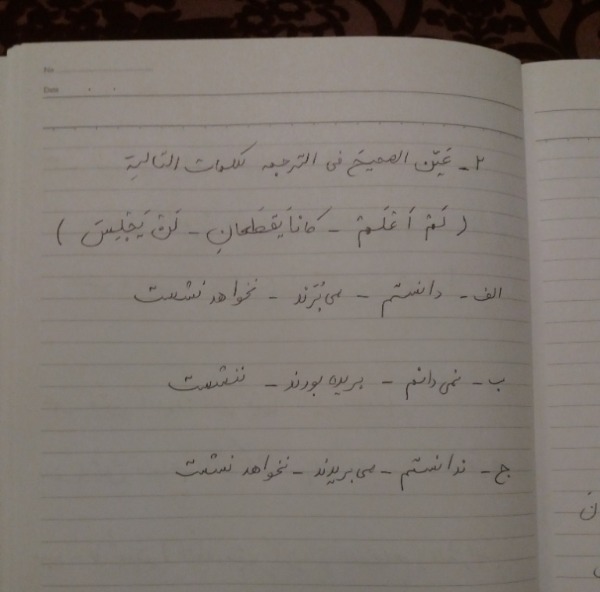 No
Date
۲- عَیِّن الصحیحَ فی الترجمه لکلمات التالیة
( لَمْ اَعْلَمْ - کانا یَقطَعانِ - لَنْ یَجْلِسَ )
الف - دانستم - می بُرَند - نخواهد نشست
ب - نمی دانم - بریده بودند - ننشست
ج - ندانستم - می بریدند - نخواهد نشست
نَ